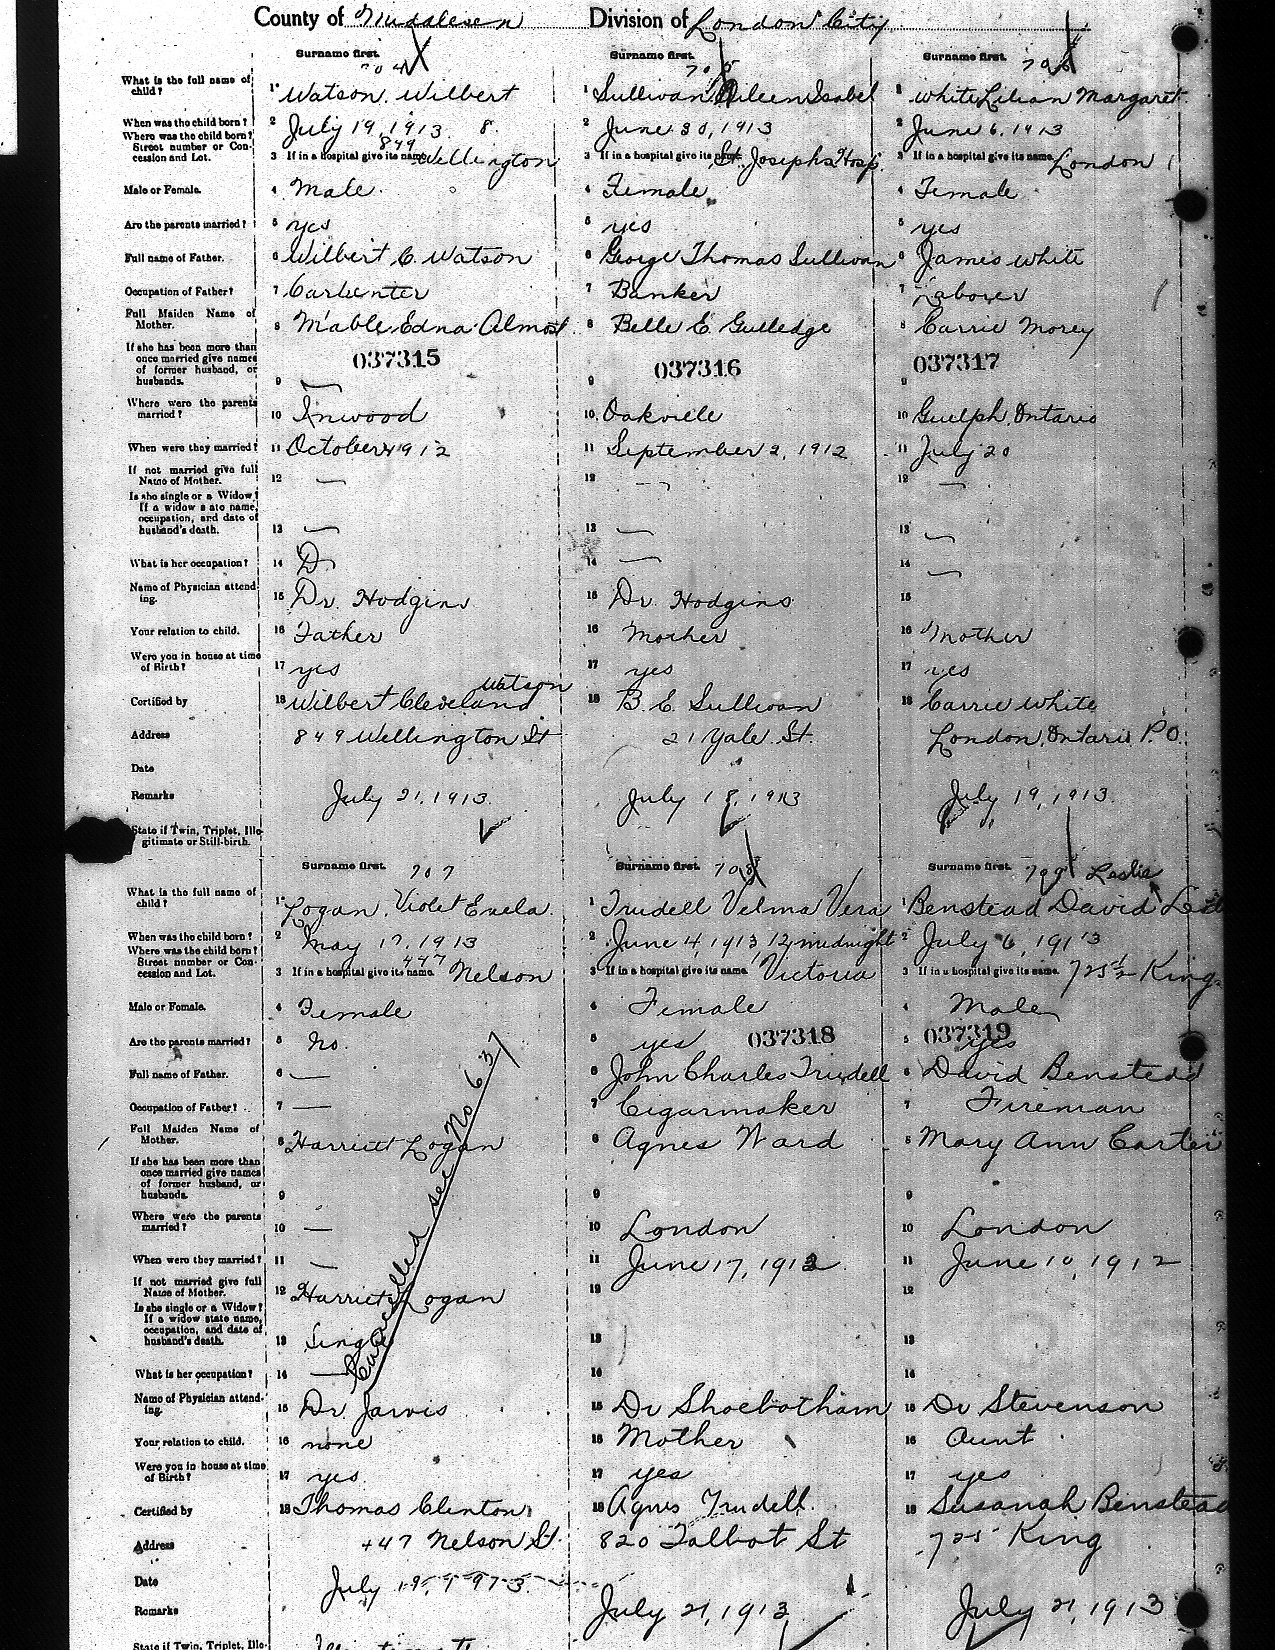 County of Middlesex Division of London City
Surname first. Surname first. Surname first.
704 705 706
What is the full name of child? 1 Watson, Wilbert 1 Sullivan Aileen Isabel 1 White Lilian Margaret
When was the child born? 2 July 19, 1913 8. 2 June 30, 1913 2 June 6, 1913
Where was the child born? Street number or Concession and Lot. 3 If in a hospital give its name. 849 Wellington 3 If in a hospital give its name. St. Josephs Hosp. 3 If in a hospital give its name. London
Male or Female. 4 Male 4 Female 4 Female
Are the parents married? 5 yes 5 yes 5 yes
Full name of Father. 6 Wilbert C. Watson 6 George Thomas Sullivan 6 James White
Occupation of Father? 7 Carpenter 7 Banker 7 Labourer
Full Maiden Name of Mother. 8 Mable Edna Almost 8 Belle E. Gulledge 8 Carrie Morey
037315 037316 037317
If she has been more than once married give names of former husband, or husbands. 9 — 9 9
Where were the parents married? 10 Inwood 10 Oakville 10 Guelph, Ontario
When were they married? 11 October 1912 11 September 2, 1912 11 July 20
If not married give full Name of Mother. 12 — 12 — 12 —
Is she single or a Widow? If a widow state name, occupation, and date of husband's death. 13 — 13 — 13 —
What is her occupation? 14 D 14 — 14 —
Name of Physician attending. 15 Dr. Hodgins 15 Dr. Hodgins 15
Your relation to child. 16 Father 16 Mother 16 Mother
Were you in house at time of Birth? 17 yes 17 yes 17 yes
Certified by 18 Wilbert Cleveland Watson 18 B. E. Sullivan 18 Carrie White
Address 849 Wellington St 21 Yale St. London, Ontario P.O.
Date
Remarks July 21, 1913. July 18, 1913 July 19, 1913.
State if Twin, Triplet, Illegitimate or Still-birth.
Surname first. 707 Surname first. 708 Surname first. 709 Leslie
What is the full name of child? 1 Logan, Violet Evela 1 Trudell Velma Vera 1 Benstead David
When was the child born? 2 May 17, 1913 2 June 4, 1913 12 midnight 2 July 6, 1913
Where was the child born? Street number or Concession and Lot. 3 If in a hospital give its name. 447 Nelson 3 If in a hospital give its name. Victoria 3 If in a hospital give its name. 725½ King
Male or Female. 4 Female 4 Female 4 Male
Are the parents married? 5 No. 5 yes 037318 5 yes 037319
Full name of Father. 6 — 6 John Charles Trudell 6 David Benstead
Occupation of Father? 7 — 7 Cigarmaker 7 Fireman
Full Maiden Name of Mother. 8 Harriett Logan 8 Agnes Ward 8 Mary Ann Carter
If she has been more than once married give names of former husband, or husbands. 9 9 9
Where were the parents married? 10 — 10 London 10 London
When were they married? 11 — 11 June 17, 1912 11 June 10, 1912
If not married give full Name of Mother. 12 Harriet Logan 12 12
Is she single or a Widow? If a widow state name, occupation, and date of husband's death. 13 Single 13 13
What is her occupation? 14 — 14 14
Cancelled see No 637
Name of Physician attending. 15 Dr Jarvis 15 Dr Shoebotham 15 Dr Stevenson
Your relation to child. 16 none 16 Mother 16 Aunt
Were you in house at time of Birth? 17 yes 17 yes 17 yes
Certified by 18 Thomas Clinton 18 Agnes Trudell. 18 Susanah Benstead
Address 447 Nelson St. 820 Talbot St 725 King
Date July 19, 1913
Remarks July 21, 1913 July 21, 1913
State if Twin, Triplet, Ille-